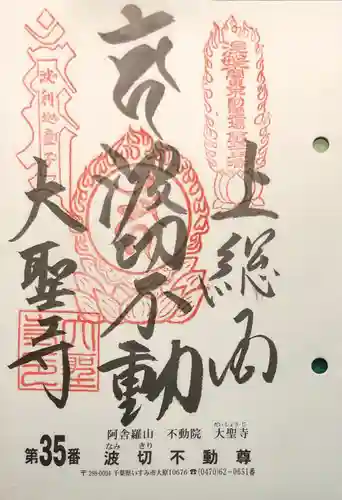 奉
波切不動
上総国
大聖寺
阿舎羅山 不動院 大聖寺
だいしょうじ
第35番 波切不動尊
なみ きり
〒298-0004 千葉県いすみ市大原10676 ☎(0470)62-0651番